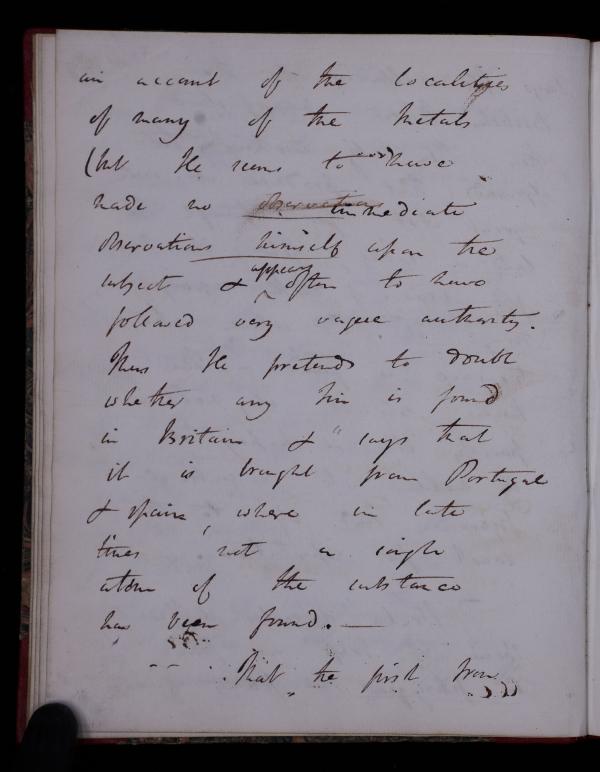 an account of the localities
of many of the Metals
(but He seems to have
made no observations immediate
observations himself upon the
subject & appears often to have
followed very vague authority.
Thus He pretends to doubt
whether any tin is found
in Britain & "says that
it is brought from Portugal
& Spain, where in late
times not a single
atom of the substance
has been found. —
That the first